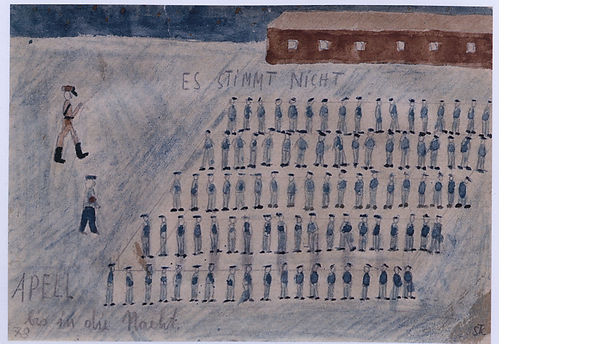 ES STIMMT NICHT
APELL
bis in die Nacht.
SK